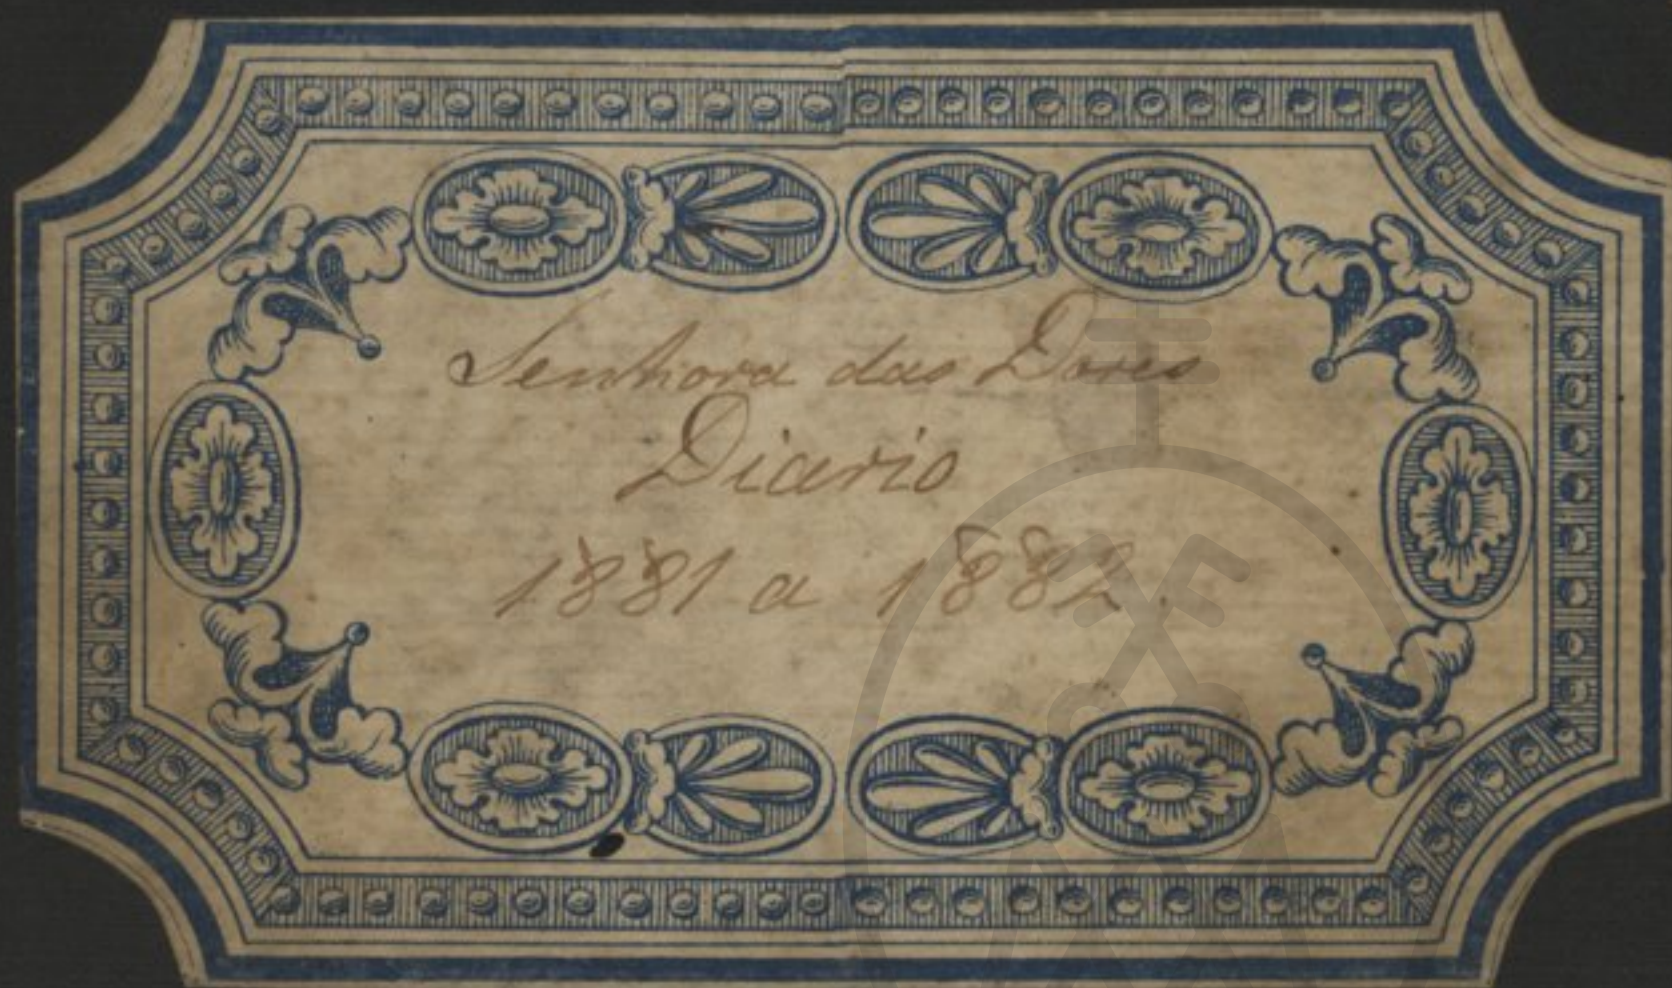 Senhora das Dores
Diario
1881 a 1882.